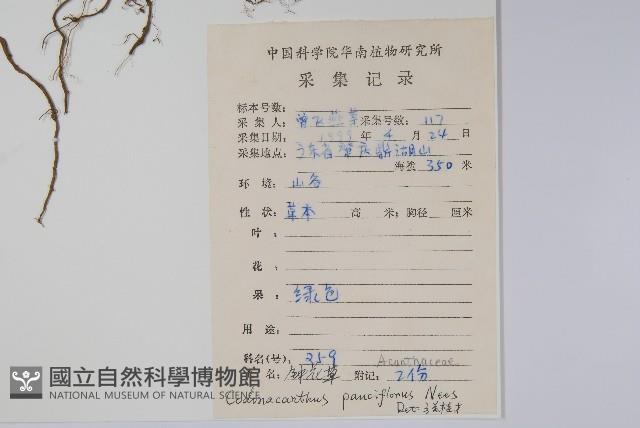 中国科学院华南植物研究所
采集记录
标本号数:
采集人: 曾飞燕等 采集号数: 117
采集日期: 1999年4月24日
采集地点: 广东省肇庆鼎湖山
海拔 350 米
环境: 山谷
性状: 草本 高 米; 胸径 厘米
叶:
花:
果: 绿色
用途:
科名(号): 259 Acanthaceae
名: 钟花草 附记: 2份
Codonacanthus pauciflorus Nees
Det.
國立自然科學博物館
NATIONAL MUSEUM OF NATURAL SCIENCE